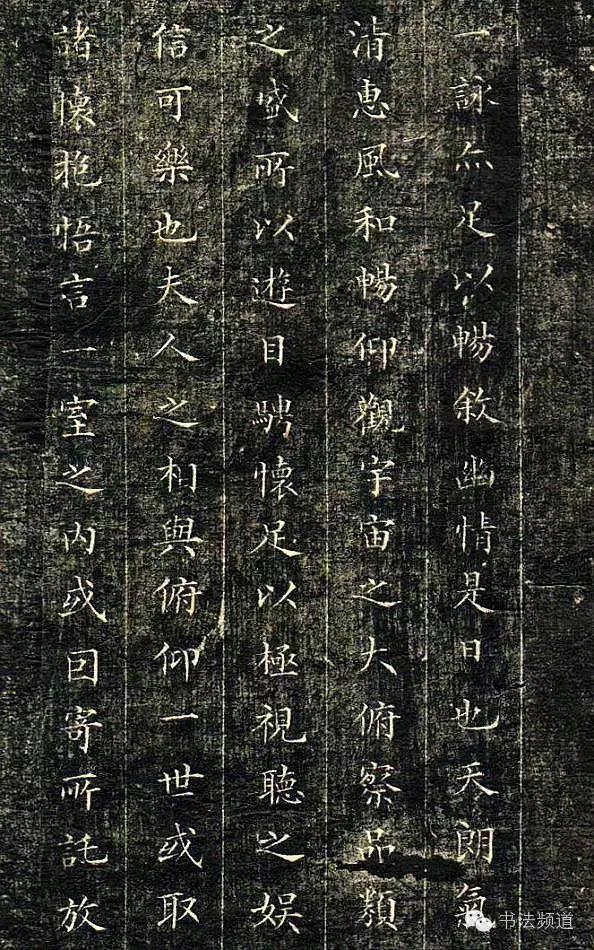 一詠亦足以暢敘幽情是日也天朗氣
清惠風和暢仰觀宇宙之大俯察品類
之盛所以遊目騁懷足以極視聽之娛
信可樂也夫人之相與俯仰一世或取
諸懷抱悟言一室之內或因寄所託放
书法频道